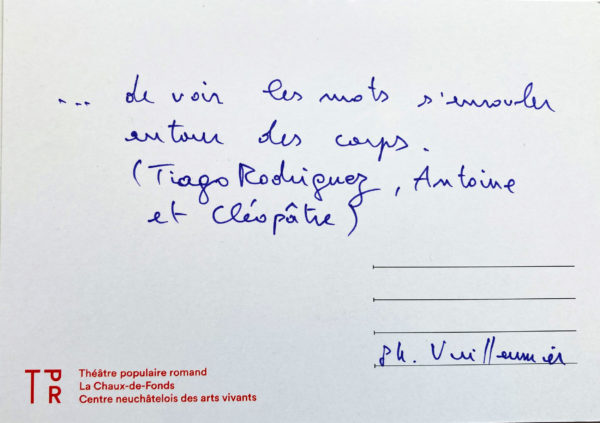 ... de voir les mots s'enrouler
autour des corps.
(Tiago Rodriguez, Antoine
et Cléopâtre)
Ph. Vuilleumier
TPR
Théâtre populaire romand
La Chaux-de-Fonds
Centre neuchâtelois des arts vivants